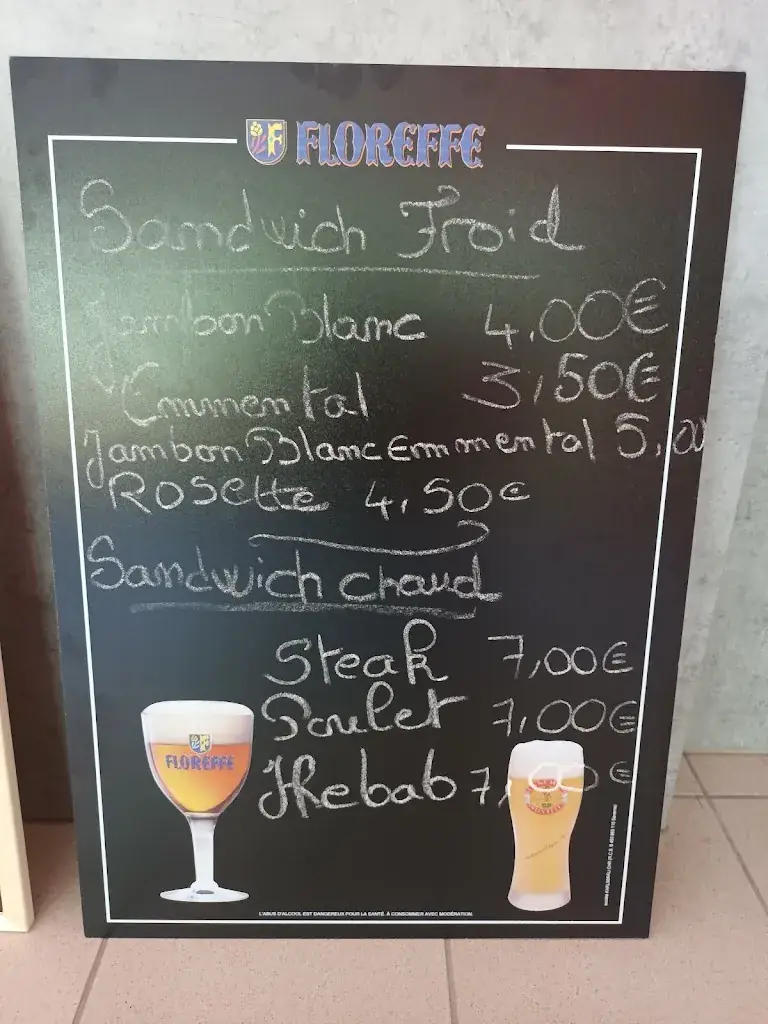 FLOREFFE
Sandwich Froid
Jambon Blanc 4,00€
Emmental 3,50€
Jambon Blanc Emmental 5,00
Rosette 4,50€
Sandwich chaud
Steak 7,00€
Poulet 7,00€
Kebab 7,00€
FLOREFFE
L'ABUS D'ALCOOL EST DANGEREUX POUR LA SANTÉ. À CONSOMMER AVEC MODÉRATION.